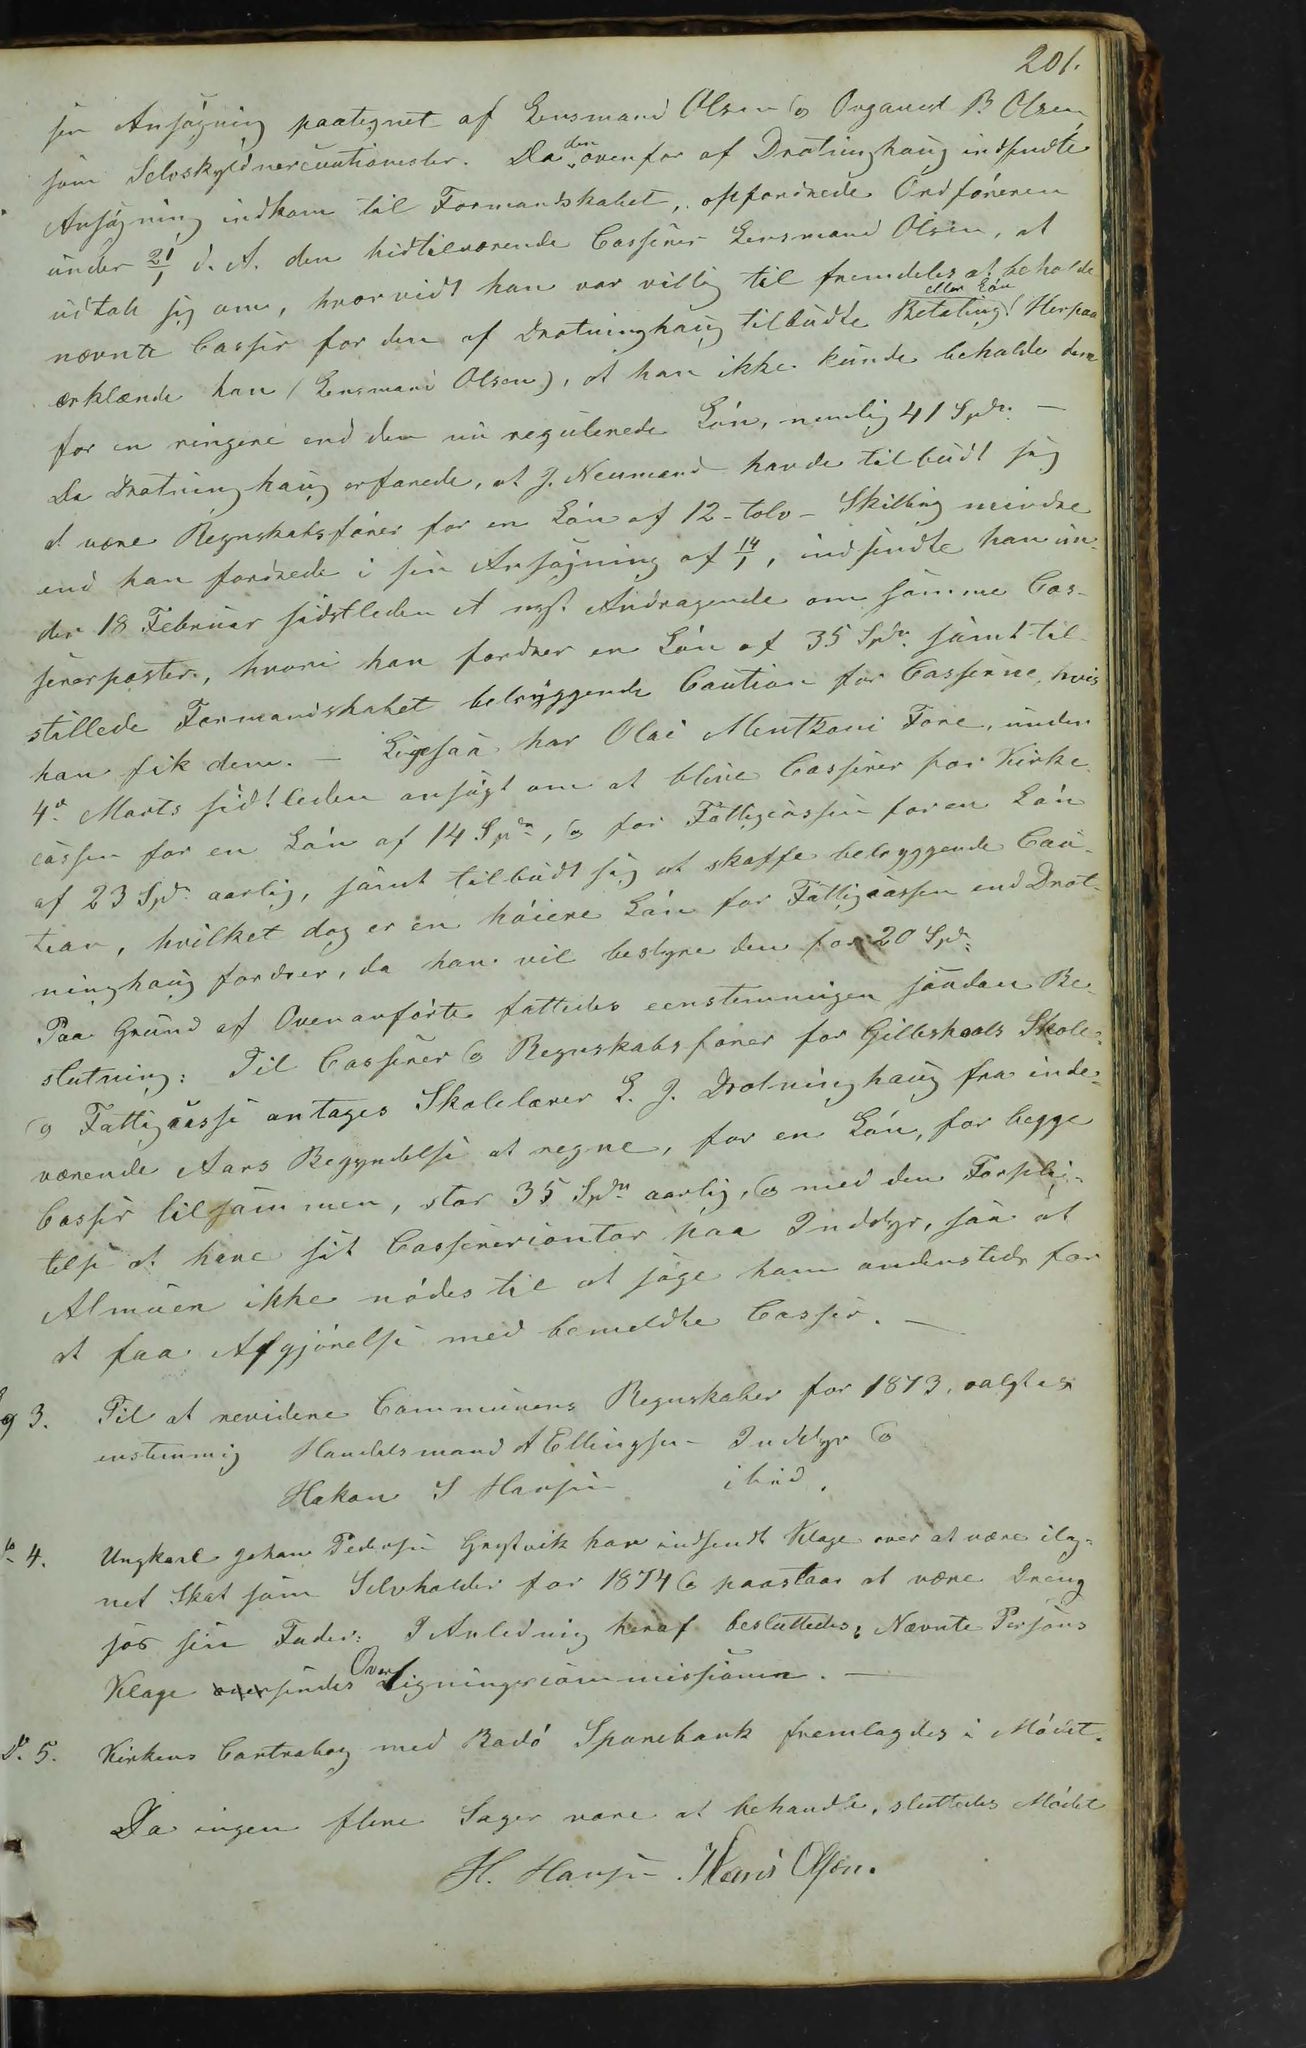 201.
sin Ansøgning paategnet af Lensmand Olsen & Organist B. Olsen,
som Selvskyldnercautionister. Da den ovenfor af Drotninghaug indsendte
Ansøgning indkom til Formandskabet, opfordrede Ordføreren
under 21/1 d. A. den hidtilværende Casserer Lensmand Olsen, at
udtale sig om, hvorvidt han var villig til fremdeles at beholde
nævnte Casser for den af Drotninghaug tilbudte Betaling eller Løn! Herpaa
erklærede han (Lensmand Olsen), at han ikke kunde beholde dem
for en ringere end den nu regulerede Løn, nemlig 41 Spdr. —
Da Drotninghaug erfarede, at J. Neumand havde tilbudt sig
at være Regnskabsfører for en Løn af 12 - tolv - Skilling mindre
end han fordrede i sin Ansøgning af 14/1, indsendte han un-
der 18 Februar sidstleden et nyt Andragende om samme Cas-
sererposter, hvori han fordrer en Løn af 35 Spdr. samt til-
stillede Formandskabet betryggende Caution for Casserne, hvis
han fik dem. — Ligesaa har Olai Mentzoni Fore, under
4de Marts sidstleden ansøgt om at blive Casserer for Kirke-
cassen for en Løn af 14 Spdr, & for Fattigcassen for en Løn
af 23 Spdr. aarlig, samt tilbudt sig at skaffe betryggende Cau-
tion, hvilket dog er en høiere Løn for Fattigcassen end Drot-
ninghaug fordrer, da han vil bestyre den for 20 Spdr.
Paa Grund af Ovenanførte fattedes eenstemmigen saadan Be-
slutning: Til Casserer & Regnskabsfører for Gilleskaals Skole-
& Fattigcasse antages Skolelærer L. J. Drotninghaug fra inde-
værende Aars Begyndelse at regne, for en Løn, for begge
Casser tilsammen, stor 35 Spdr aarlig, & med den Forpli-
telse at have sit Casserercontor paa Inddyr, saa at
Almuen ikke nødes til at søge ham andensteds for
at faa Afgjørelse med bemeldte Casser. —
Sag 3. Til at revidere Communens Regnskaber for 1873, valgtes
enstemmig Handelsmand A Ellingsen - Inddyr &
Hakon S Hansen ibid.
Do 4. Ungkarl Johan Pedersen Grystvik har indsendt Klage over at være ilig-
net Skat som Selvholder for 1874 & paastaar at være Dreng
hos sin Fader: I Anledning heraf besluttedes: Nævnte Persons
Klage oversendes OverLigningscommissionen. —
Do. 5. Kirkens Contrabog med Bodø Sparebank fremlagdes i Mødet.
Da ingen flere Sager vare at behandle, sluttedes Mødet
H. Hansen Hans Olsen.